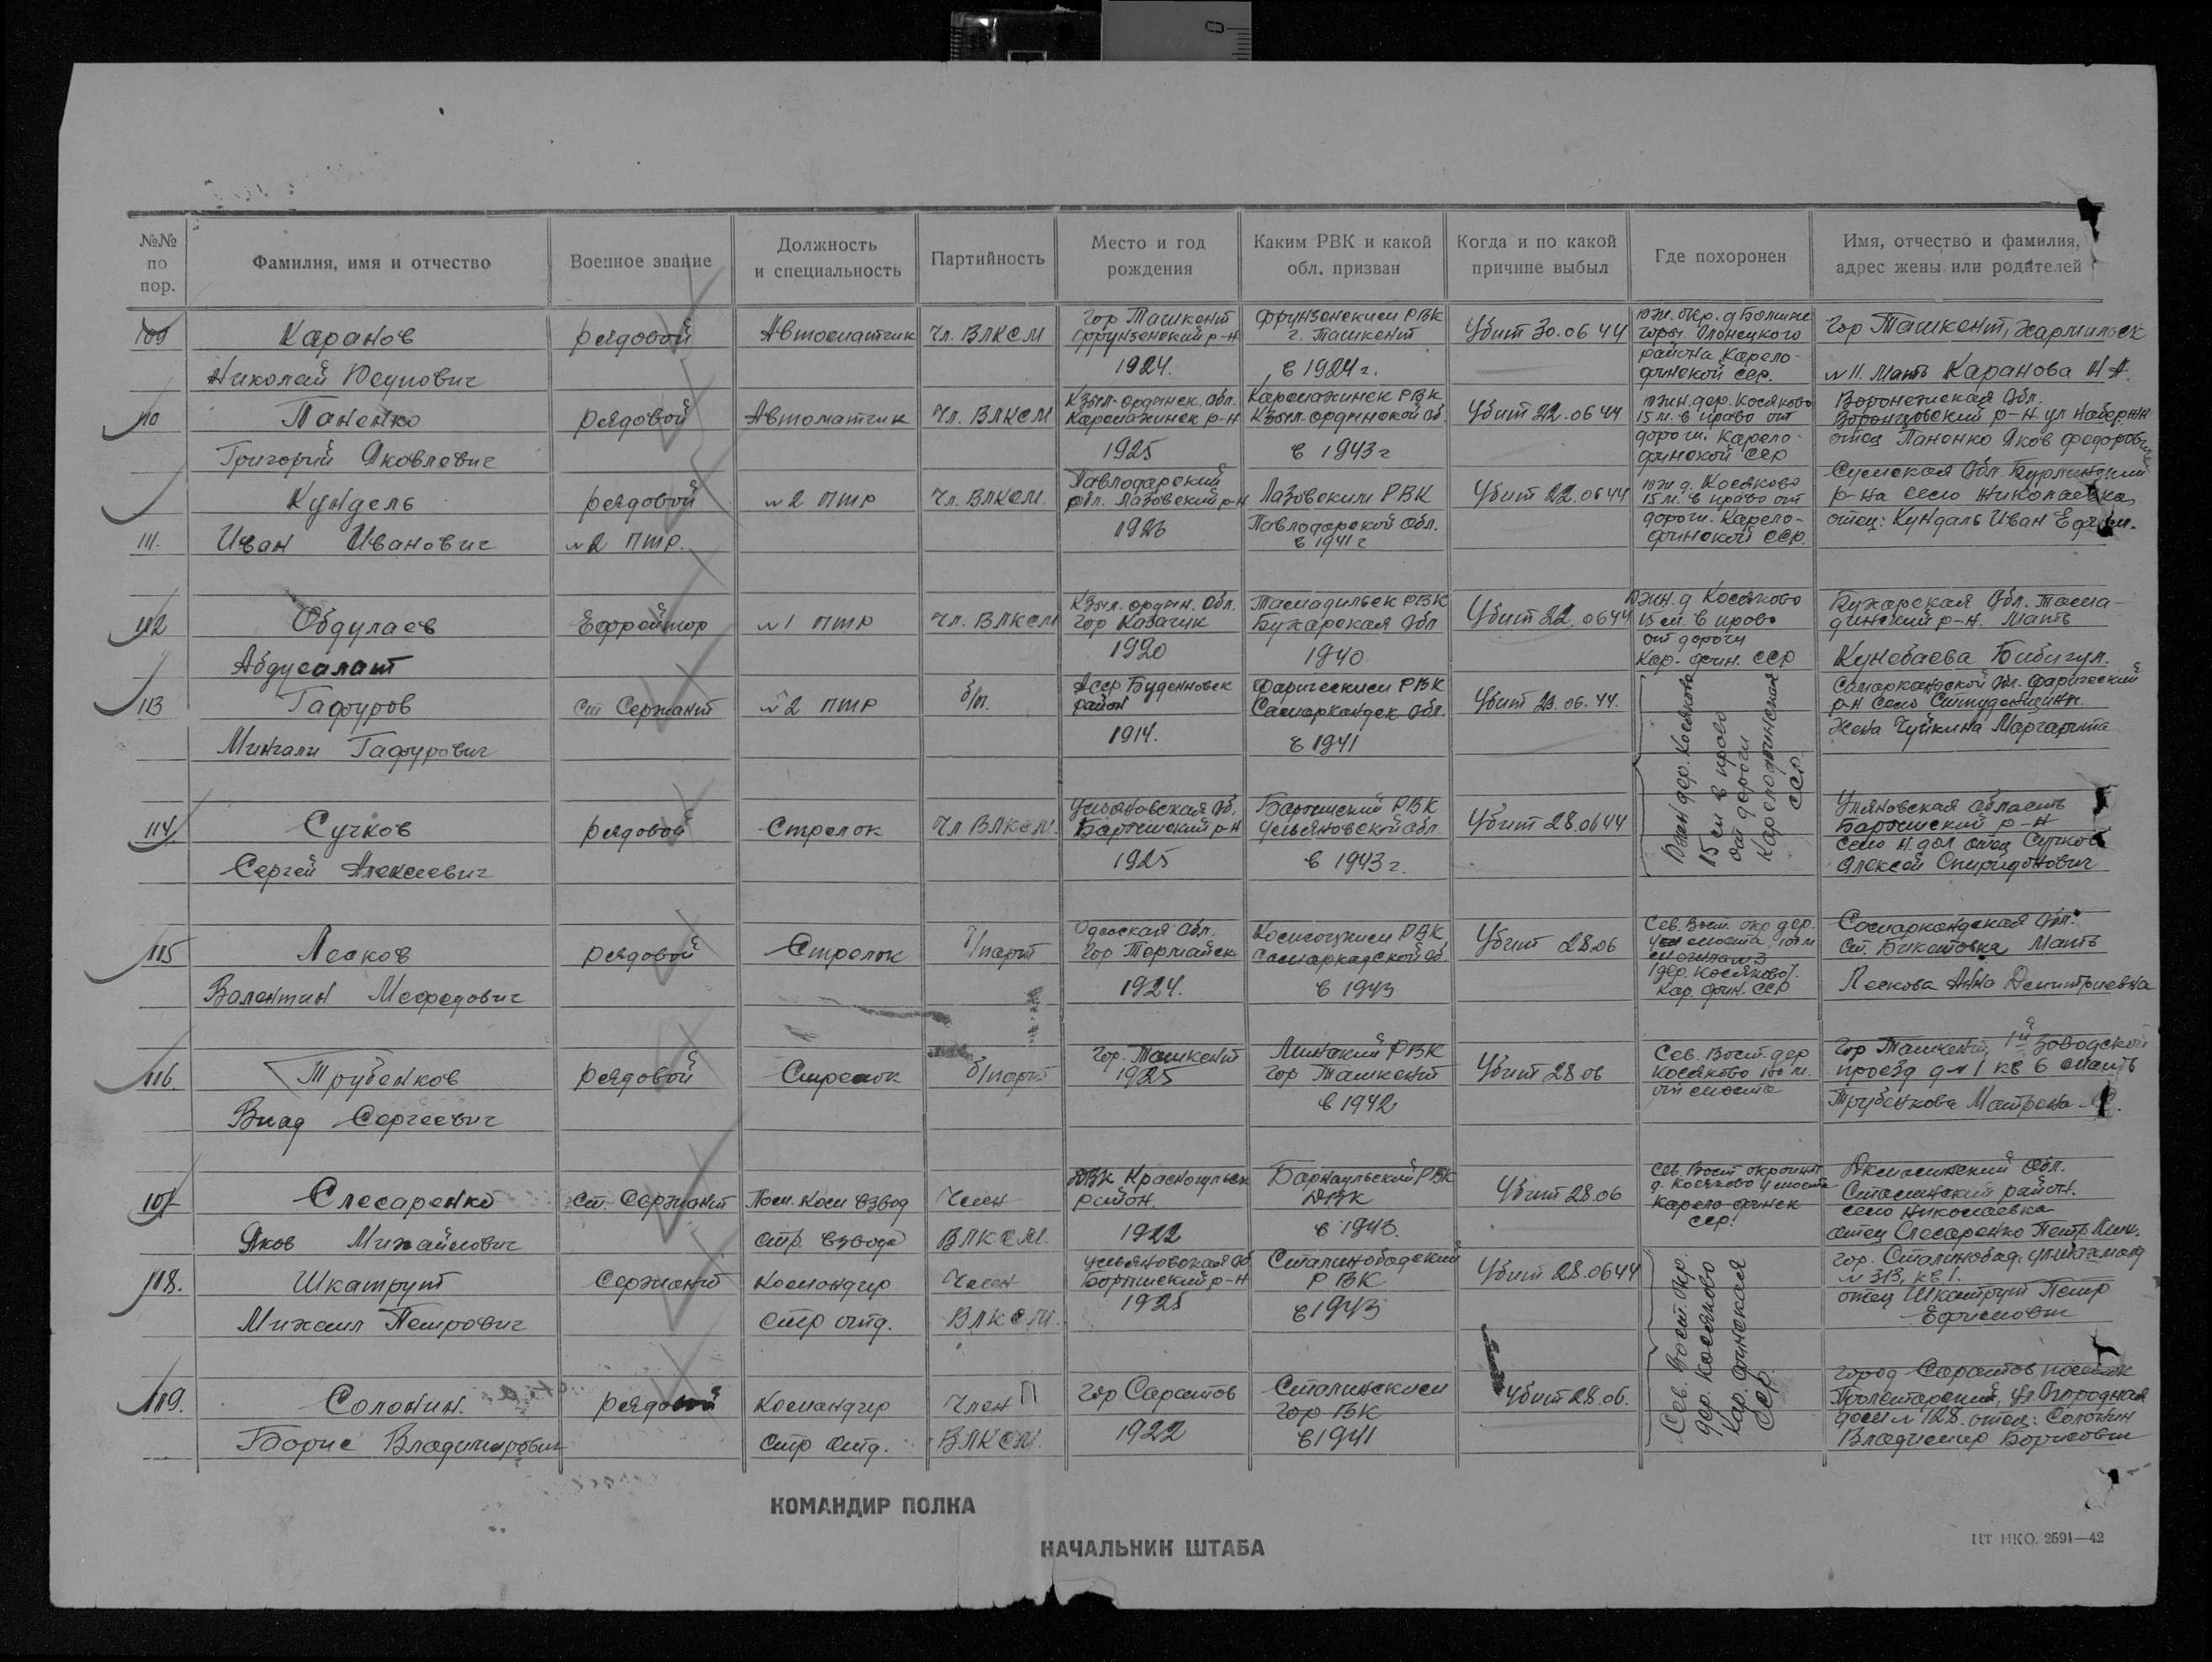 №№ по пор.
Фамилия, имя и отчество
Военное звание
Должность и специальность
Партийность
Место и год рождения
Каким РВК и какой обл. призван
Когда и по какой причине выбыл
Где похоронен
Имя, отчество и фамилия, адрес жены или родителей
109 Каранов рядовой Автоматчик Чл. ВЛКСМ Гор Ташкент Фрунзенский р-н 1924. Фрунзенским РВК г. Ташкент в 1924 г. Убит 30.06 44
Николай
района Карело-финской сср.
Гор Ташкент,
№ 11. Мать Каранова Н А.
110 Паненко рядовой Автоматчик Чл. ВЛКСМ Кзыл-ординск. обл. р-н 1925 РВК Кзыл.ординской об. в 1943 г Убит 22.06 44
Григорий Яковлевич
южн. дер. Косяково 15 м. в право от дороги. Карело-финской сср
Воронежская обл. р-н ул
отец Паненко Яков Федорович
Кундель рядовой № 2 птр Чл. ВЛКСМ. Павлодарский обл. Лазовский р-н 1923 Лазовским РВК Павлодарской обл. в 1941 г Убит 22.06 44
111. Иван Иванович № 2 птр.
южн д. Косяково 15 м. в право от дороги. Карело-финской сср.
Сумская обл.
р-на село Николаевка,
отец: Кундаль Иван
112 Обдулаев Ефрейтор № 1 птр Чл. ВЛКСМ Кзыл. ордин. обл. гор 1920 РВК Бухарская обл 1940 Убит 22.06 44
Абдусалам
южн. д Косяково 15 м. в право от дороги Кар-фин. сср
Бухарская обл. р-н. Мать
Кунебаева Бибигул.
113 Гафуров ст Сержант № 2 птр б/п. Асср Буденновск район 1914. РВК Самарканд ск обл. в 1941 Убит 23.06.44.
Мингали Гафурович
Южн дер. Косяково 15 м в право от дороги Карелофинская ССР.
Самаркандской обл.
р-н село
Жена Чуйкина Маргарита
114. Сучков рядовой Стрелок Чл ВЛКСМ. Ульяновская об. р-н 1925 РВК Ульяновской обл. в 1943 г. Убит 28.06 44
Сергей Алексеевич
Ульяновская область р-н
село отец Сучков
Алексей Спиридонович
115 Лесков рядовой Стрелок б/парт Одесская обл. гор 1924. РВК Самаркадской об. в 1943 Убит 28.06
Валентин Мефедович
Сев. Вост. окр дер.
дер. Косяково). Кар. фин. сср
Самаркандская обл.
ст. Мать
Лескова Анна Дмитриевна
116 Трубенков рядовой Стрелок б/парт Гор. Ташкент 1925 РВК Гор Ташкент в 1942 Убит 28 06
Влад Сергеевич
Сев. Вост. дер Косяково 100 м. от моста
Гор Ташкент, 1й Заводской
проезд д № 1 кв 6 мать
Трубенкова Матрена
107 Слесаренко Ст. Сержант Пом. Ком взвод Член район. 1922 Барнаульский РВК в 1943. Убит 28.06
Яков Михайлович стр. взвода ВЛКСМ.
д. Косяково у моста Карело-финск сср.
обл.
Сталинский район.
село Николаевка
отец Слесаренко
118. Шкатрут Сержант командир Член Ульяновская об р-н 1925 Сталинобадский РВК в 1943 Убит 28.06 44
Михаил Петрович стр отд. ВЛКСМ.
Сев. Вост. окр. дер. Косяково Кар. финская сср.
гор. Сталинобад,
№ 313, кв 1.
отец Шкатрут Петр
Ефимович
119. Солонин. рядовой командир Член П гор Саратов 1922 Сталинским гор ВК в 1941 Убит 28.06.
Борис Владимирович стр отд. ВЛКСМ.
город Саратов, поселок
Пролетарский, ул. Огородная
дом № 128. отец: Солонин
Владимир Борисович
КОМАНДИР ПОЛКА
НАЧАЛЬНИК ШТАБА
ПТ НКО. 2591—42
0